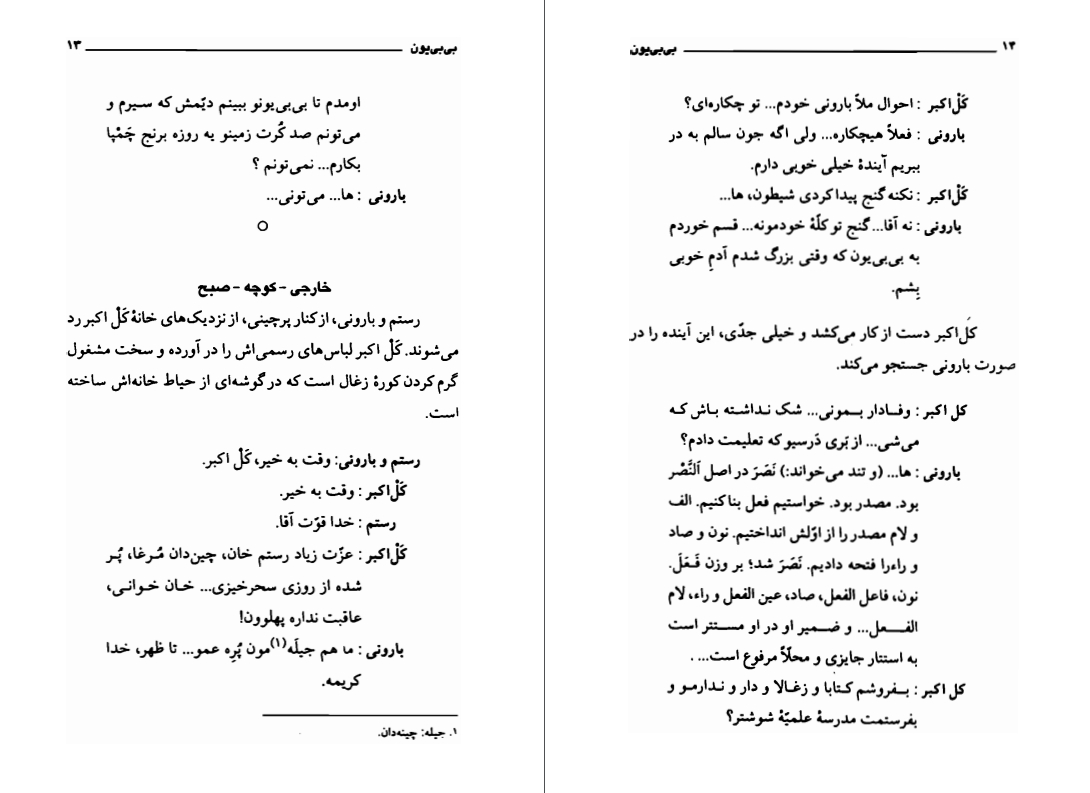 بی‌بی‌یون ۱۳
اومدم تا بی‌بی‌یونو ببینم دیّمش که سیرم و
می‌تونم صد کُرت زمینو یه روزه برنج چَمْپا
بکارم... نمی‌تونم ؟
بارونی : ها... می‌تونی...
خارجی - کوچه - صبح
رستم و بارونی، از کنار پرچینی، از نزدیک‌های خانهٔ کَلْ اکبر رد
می‌شوند. کَلْ اکبر لباس‌های رسمی‌اش را در آورده و سخت مشغول
گرم کردن کورهٔ زغال است که در گوشه‌ای از حیاط خانه‌اش ساخته
است.
رستم و بارونی: وقت به خیر، کَلْ اکبر.
کَلْ‌اکبر : وقت به خیر.
رستم : خدا قوّت آقا.
کَلْ‌اکبر : عزّت زیاد رستم خان، چین‌دان مُرغا، پُـر
شده از روزی سحرخیزی... خـان خـوانـی،
عاقبت نداره پهلوون!
بارونی : ما هم جیلَه(۱)مون پُرِه عمو... تا ظهر، خدا
کریمه.
۱. جیله: چینه‌دان.
بی‌بی‌یون ۱۴
کَلْ‌اکبر : احوال ملاّ بارونی خودم... تو چکاره‌ای؟
بارونی : فعلاً هیچکاره... ولی اگه جون سالم به در
ببریم آیندهٔ خیلی خوبی دارم.
کَلْ‌اکبر : نکنه گنج پیدا کردی شیطون، ها...
بارونی : نه آقا... گنج تو کلّهٔ خودمونه... قسم خوردم
به بی‌بی‌یون که وقتی بزرگ شدم آدمِ خوبی
بِشم.
کَل‌اکبر دست از کار می‌کشد و خیلی جدّی، این آینده را در
صورت بارونی جستجو می‌کند.
کل اکبر : وفـادار بـمونی... شک نـداشـته بـاش کـه
می‌شی... از بَری دَرسیو که تعلیمت دادم؟
بارونی : ها... (و تند می‌خواند:) نَصَرَ در اصل اَلنَّصْر
بود. مصدر بود. خواستیم فعل بنا کنیم. الف
و لام مصدر را از اوّلش انداختیم. نون و صاد
و راءرا فتحه دادیم. نَصَرَ شد؛ بر وزن فَعَلَ.
نون، فاءل الفعل، صاد، عین الفعل و راء، لام
الفـــعل... و ضـمیر او در او مسـتتر است
به استتار جایزی و محلّاً مرفوع است... .
کل اکبر : بـفروشم کـتابا و زغـالا و دار و نـدارمـو و
بفرستمت مدرسهٔ علمیّهٔ شوشتر؟